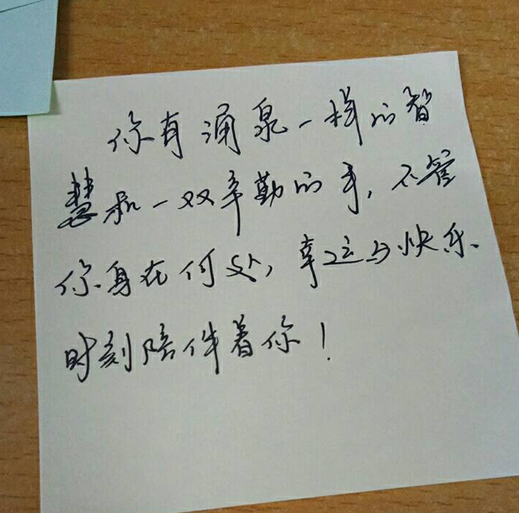 你有涌泉一样的智
慧和一双辛勤的手,不管
你身在何处,幸运与快乐
时刻陪伴着你!